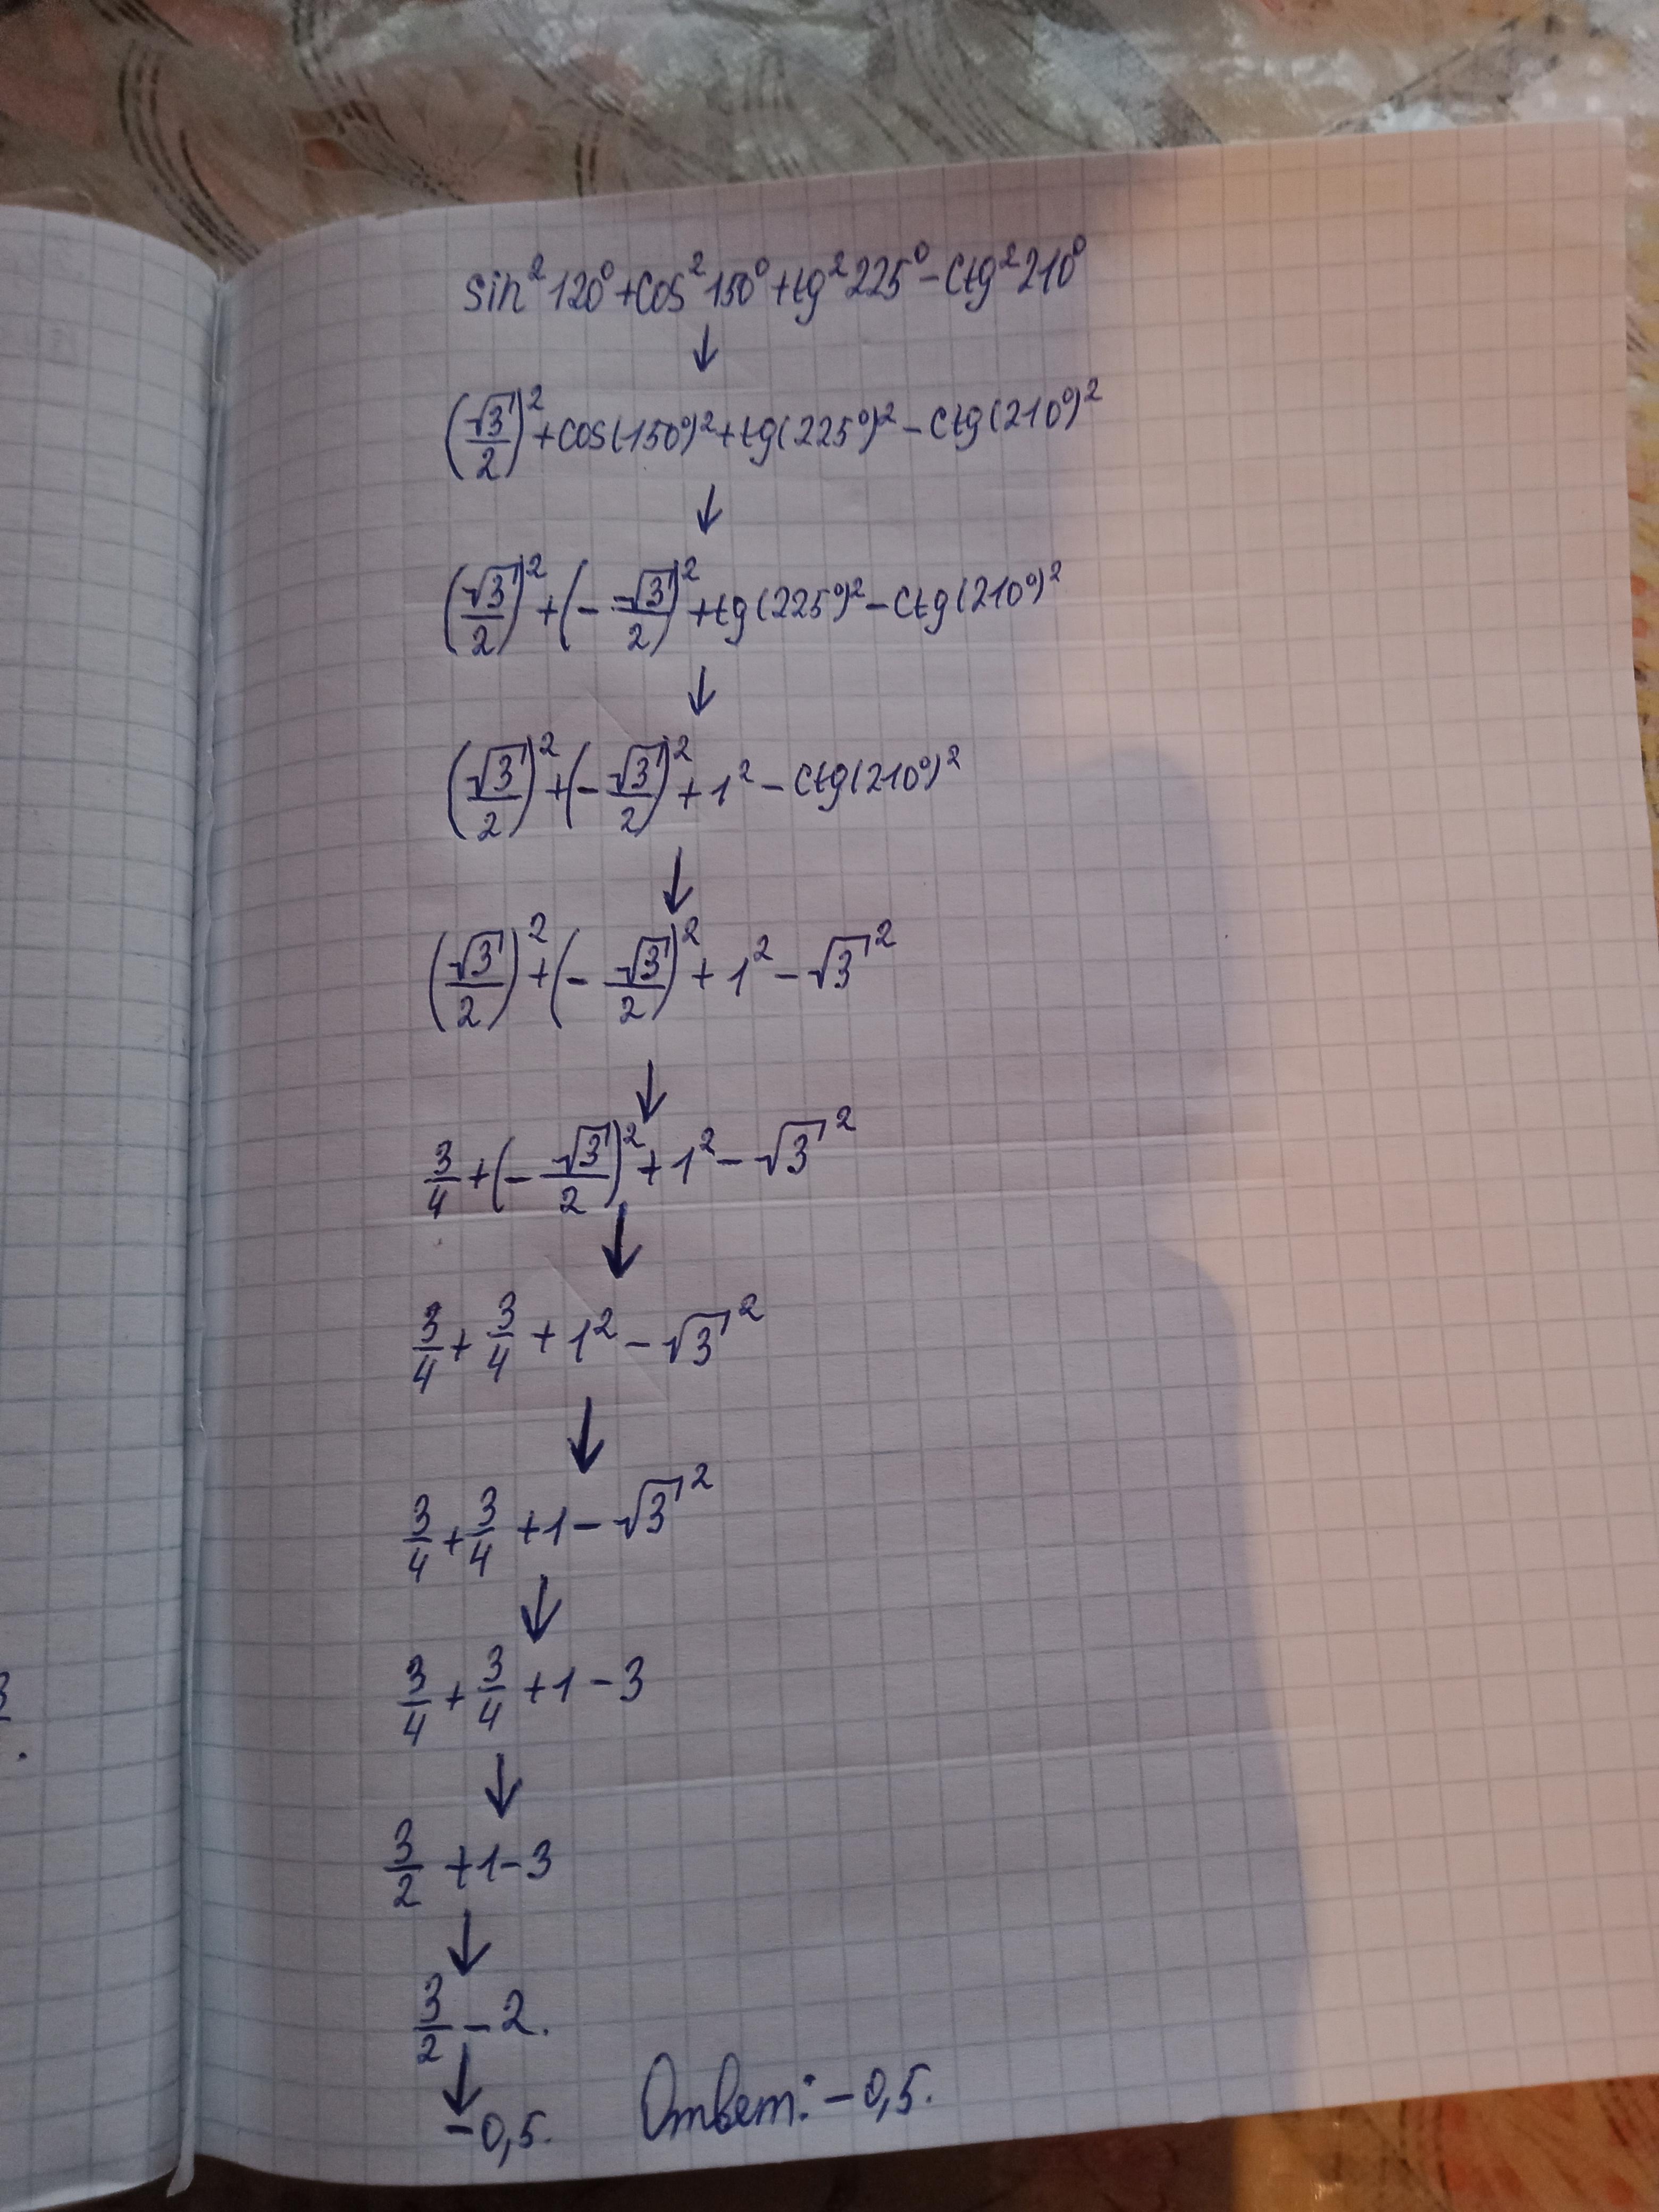 sin²120⁰+cos²150⁰+tg²225⁰-ctg²210⁰
↓
(√3/2)²+cos(150⁰)²+tg(225⁰)²-ctg(210⁰)²
↓
(√3/2)²+(-√3/2)²+tg(225⁰)²-ctg(210⁰)²
↓
(√3/2)²+(-√3/2)²+1²-ctg(210⁰)²
↓
(√3/2)²+(-√3/2)²+1²-√3²
↓
3/4+(-√3/2)²+1²-√3²
↓
3/4+3/4+1²-√3²
↓
3/4+3/4+1-√3²
↓
3/4+3/4+1-3
↓
3/2+1-3
↓
3/2-2.
↓
-0,5. Ответ: -0,5.